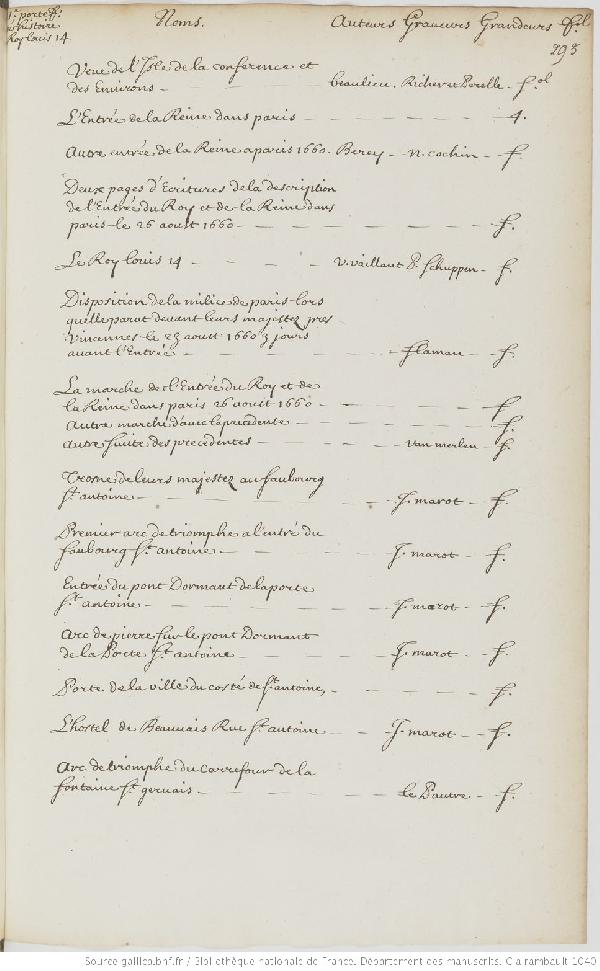 1.e porte f.
Histoire
Roy louis 14
Noms. Auteurs Graveurs Grandeurs fol
293
Veue de l'Isle de la conference et
des Environs - beaulieu. Richer et Perelle - fol
L'Entrée de la Reine dans paris - 4.
Autre entrée de la Reine a paris 1660. Berey - N. cochin - f.
Deux pages d'Ecritures de la description
de l'Entrée du Roy et de la Reine dans
paris le 26 aoust 1660 - f.
Le Roy louis 14 - V. vaillant P. Schuppen - f.
Disposition de la milice de paris lors
quelle parut devant leurs majestez pres
Vincennes le 23 aoust 1660 3 jours
avant l'Entrée - flaman - f.
La marche de l'Entrée du Roy et de
la Reine dans paris 26 aoust 1660 - f.
Autre marche d'avec la precedente - f.
Autre suite des precedentes - Van merlen - f.
Trosne de leurs majestez au faubourg
St. antoine - J. marot - f.
Premier arc de triomphe a l'entré du
faubourg St. antoine - J. marot - f.
Entrée du pont Dormant de la porte
St. antoine - J. marot - f.
Arc de pierre sur le pont Dormant
de la Porte St. antoine - J. marot - f.
Porte de la ville du costé de St. antoine, - f.
L'hostel de Beauvais Rue St. antoine - J. marot - f.
Arc de triomphe du carrefour de la
fontaine St. gervais - le Pautre - f.
Source gallica.bnf.fr / Bibliothèque nationale de France. Département des manuscrits. Clairambault 1040